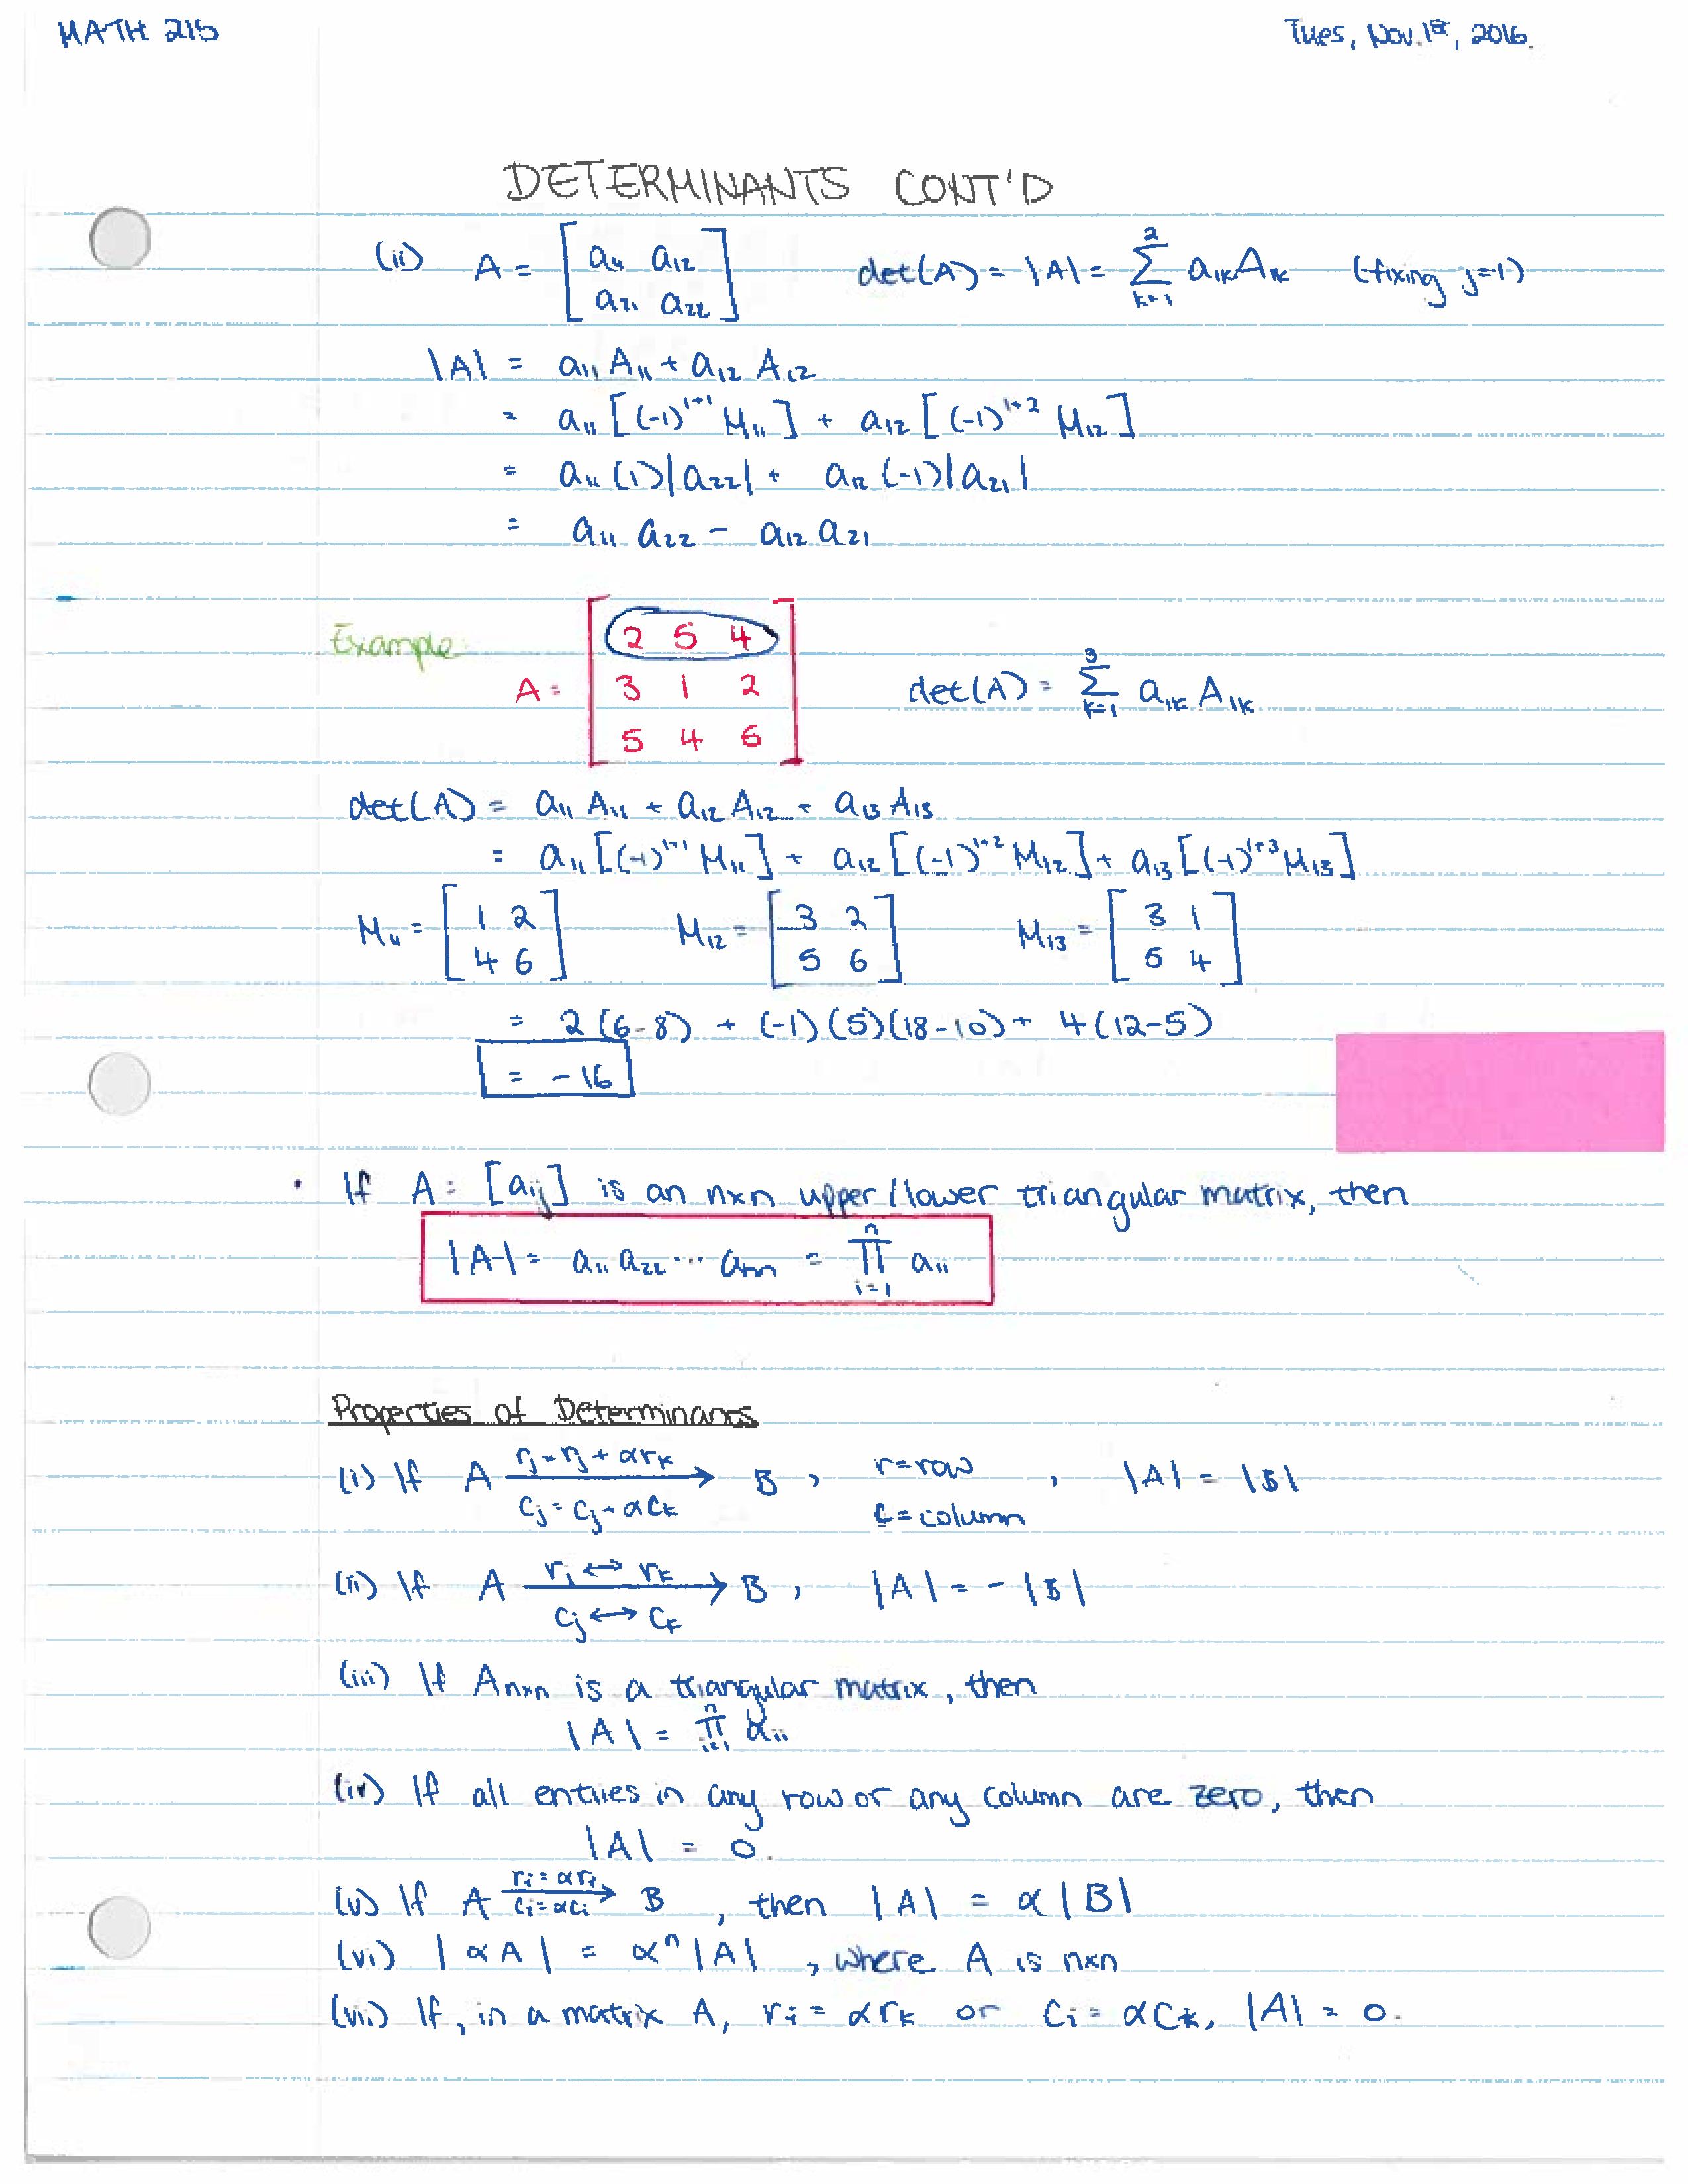 MATH 215
Tues, Nov. 1st, 2016.
DETERMINANTS CONT'D
(ii) A = [a₁₁ a₁₂; a₂₁ a₂₂] det(A) = |A| = Σₖ₌₁² a₁ₖA₁ₖ (fixing j=1)
|A| = a₁₁A₁₁ + a₁₂A₁₂
= a₁₁[(-1)¹⁺¹M₁₁] + a₁₂[(-1)¹⁺²M₁₂]
= a₁₁(1)|a₂₂| + a₁₂(-1)|a₂₁|
= a₁₁a₂₂ - a₁₂a₂₁
Example
A = [2 5 4; 3 1 2; 5 4 6] det(A) = Σₖ₌₁³ a₁ₖA₁ₖ
det(A) = a₁₁A₁₁ + a₁₂A₁₂ + a₁₃A₁₃
= a₁₁[(-1)¹⁺¹M₁₁] + a₁₂[(-1)¹⁺²M₁₂] + a₁₃[(-1)¹⁺³M₁₃]
M₁₁ = [1 2; 4 6] M₁₂ = [3 2; 5 6] M₁₃ = [3 1; 5 4]
= 2(6-8) + (-1)(5)(18-10) + 4(12-5)
= -16
• If A = [aᵢⱼ] is an n×n upper/lower triangular matrix, then
|A| = a₁₁a₂₂···aₙₙ = ∏ᵢ₌₁ⁿ aᵢᵢ
Properties of Determinants
(i) If A —(rⱼ = rⱼ + αrₖ / cⱼ = cⱼ + αcₖ)→ B, r = row c = column, |A| = |B|
(ii) If A —(rⱼ ↔ rₖ / cⱼ ↔ cₖ)→ B, |A| = -|B|
(iii) If Aₙₓₙ is a triangular matrix, then
|A| = ∏ᵢ₌₁ⁿ aᵢᵢ
(iv) If all entries in any row or any column are zero, then
|A| = 0.
(v) If A —(rᵢ = αrᵢ / cᵢ = αcᵢ)→ B, then |A| = α|B|
(vi) |αA| = αⁿ|A|, where A is n×n
(vii) If, in a matrix A, rᵢ = αrₖ or cᵢ = αcₖ, |A| = 0.